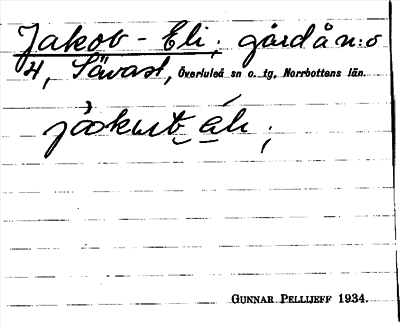 Jakob - Eli; gård å n:o
4, Sävast, Överluleå sn o. tg, Norrbottens län.
GUNNAR PELLIJEFF 1934.